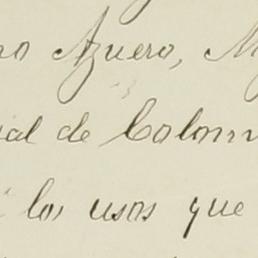 no Azuero, M
al de Colom
los usos que